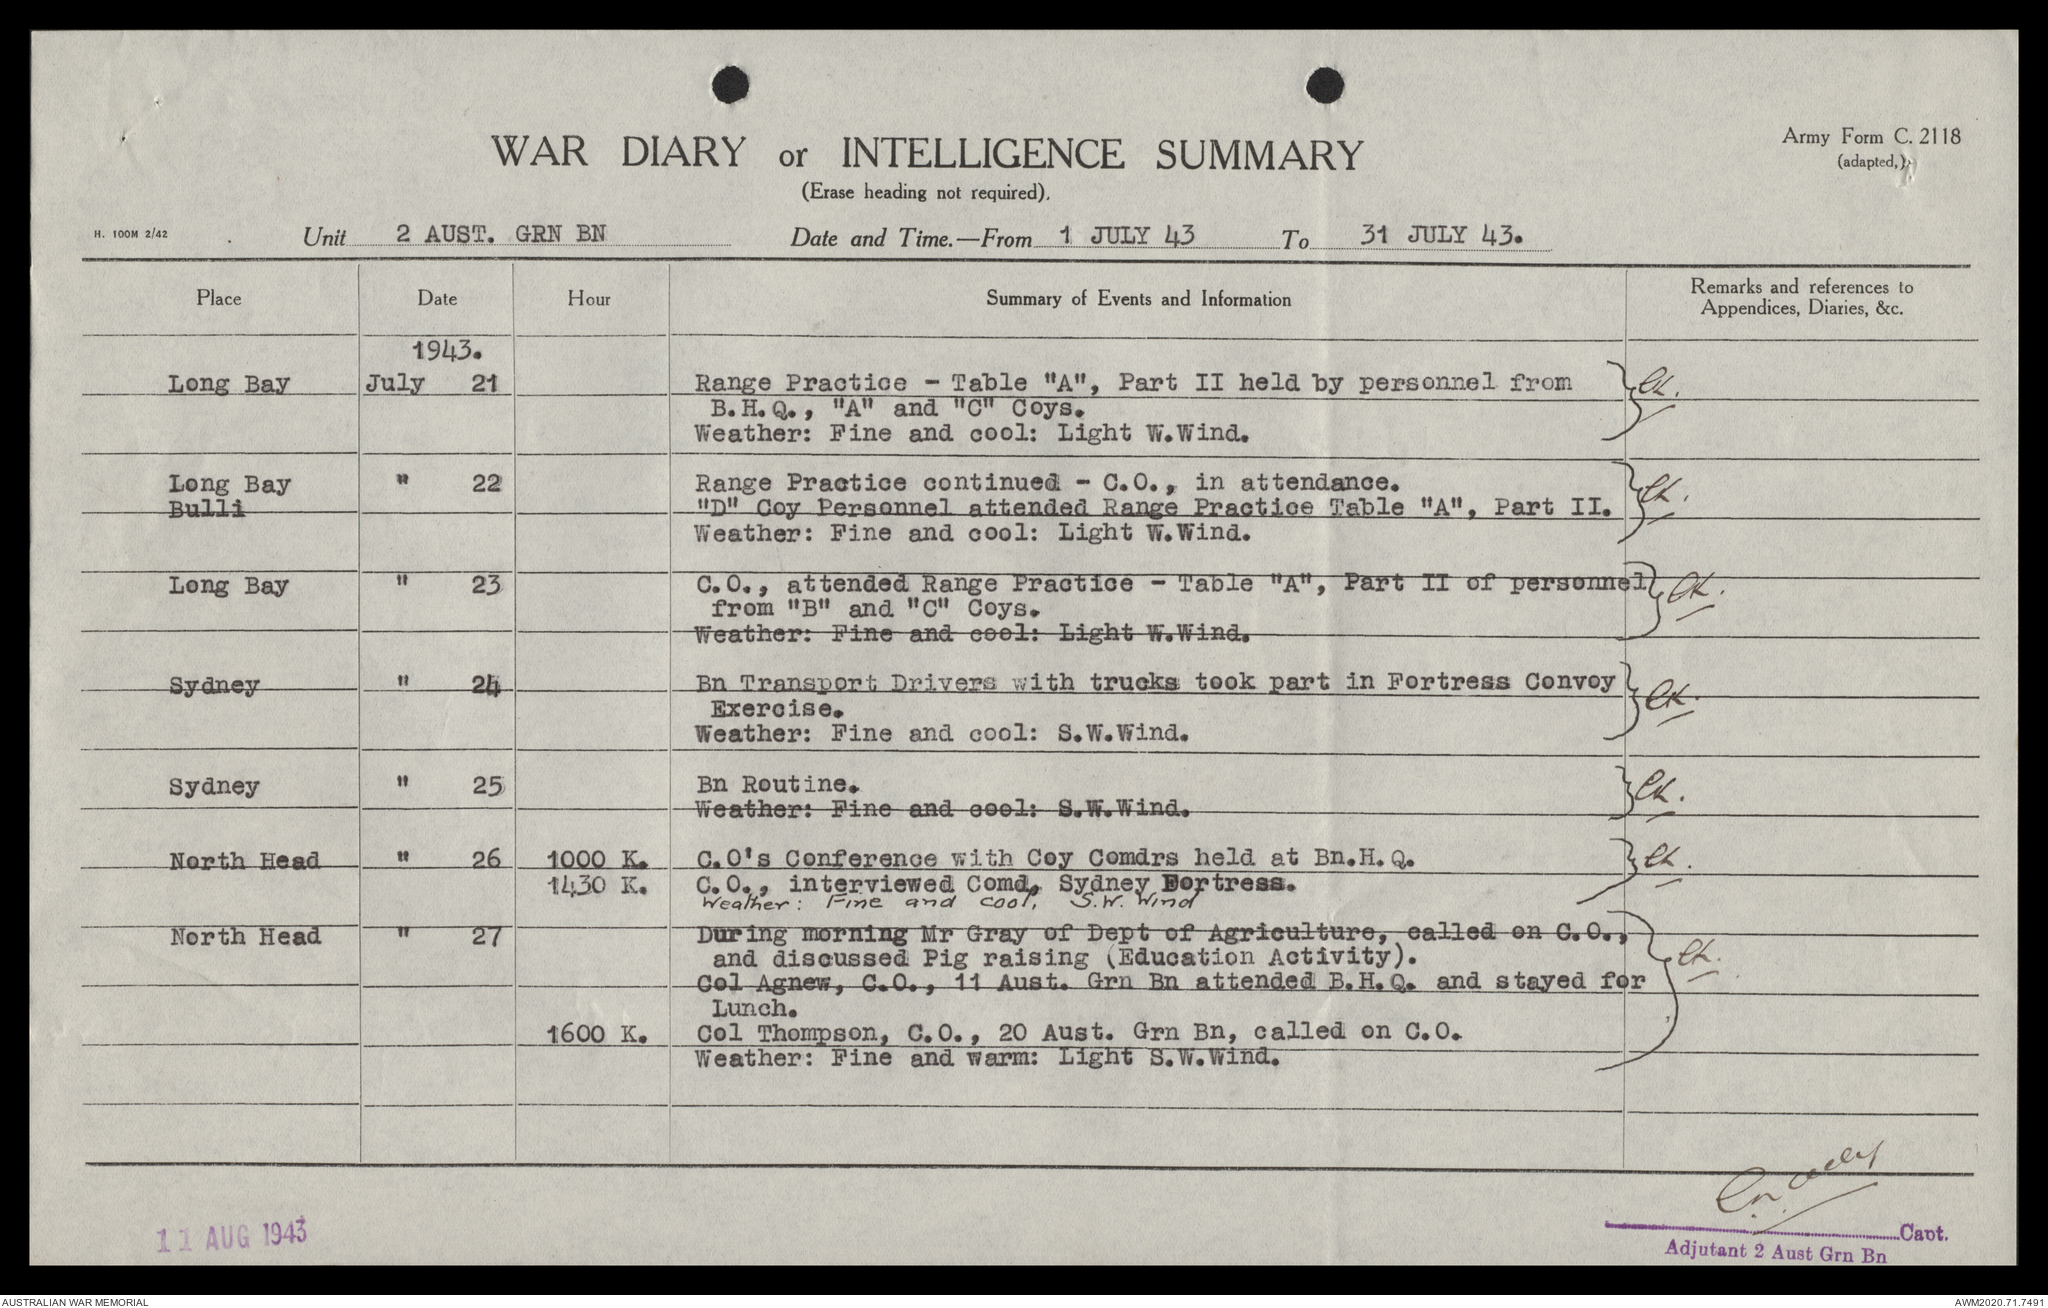 WAR DIARY or INTELLIGENCE SUMMARY
(Erase heading not required).
Army Form C. 2118
(adapted,)
H. 100M 2/42
Unit 2 AUST. GRN BN Date and Time.—From 1 JULY 43 To 31 JULY 43.
Place Date Hour Summary of Events and Information Remarks and references to
Appendices, Diaries, &c.
1943.
Long Bay July 21 Range Practice - Table "A", Part II held by personnel from
B.H.Q., "A" and "C" Coys.
Weather: Fine and cool: Light W.Wind.
Long Bay " 22 Range Practice continued - C.O., in attendance.
Bulli "D" Coy Personnel attended Range Practice Table "A", Part II.
Weather: Fine and cool: Light W.Wind.
Long Bay " 23 C.O., attended Range Practice - Table "A", Part II of personnel
from "B" and "C" Coys.
Weather: Fine and cool: Light W.Wind.
Sydney " 24 Bn Transport Drivers with trucks took part in Fortress Convoy
Exercise.
Weather: Fine and cool: S.W.Wind.
Sydney " 25 Bn Routine.
Weather: Fine and cool: S.W.Wind.
North Head " 26 1000 K. C.O's Conference with Coy Comdrs held at Bn.H.Q.
1430 K. C.O., interviewed Comd, Sydney Fortress.
Weather: Fine and cool, S.W. Wind
North Head " 27 During morning Mr Gray of Dept of Agriculture, called on C.O.,
and discussed Pig raising (Education Activity).
Col Agnew, C.O., 11 Aust. Grn Bn attended B.H.Q. and stayed for
Lunch.
1600 K. Col Thompson, C.O., 20 Aust. Grn Bn, called on C.O.
Weather: Fine and warm: Light S.W.Wind.
11 AUG 1943
Capt.
Adjutant 2 Aust Grn Bn
AUSTRALIAN WAR MEMORIAL
AWM2020.71.7491